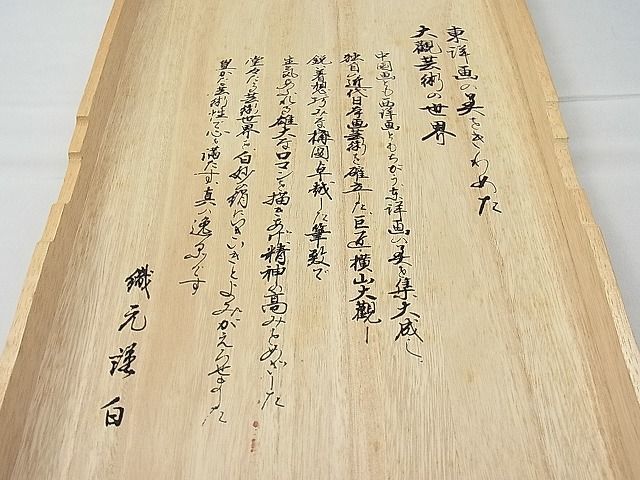 東洋画の美をきわめた
大觀芸術の世界
中国画とも西洋画ともちがう東洋画の美を集大成し、
独自の近代日本画芸術を確立した巨匠・横山大觀ー
鋭い着想巧みな構図卓越した筆致で
生気あふれる雄大なロマンを描きあげ精神の高みをめざした
堂々たる芸術世界を白妙の絹にいきいきとよみがえらせました
豊かな芸術性で心を満たす真の逸品です
織元謹白